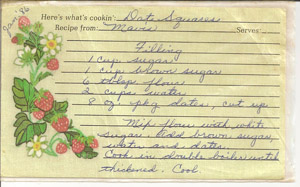 Jan. '86
Here's what's cookin' Date Squares
Recipe from: Mom's Serves
Filling
1 cup sugar
1 cup brown sugar
6 tblsp flour
2 cups water
8 oz pkg dates, cut up
Mix flour with white
sugar. Add brown sugar,
water and dates.
Cook in double boiler until
thickened. Cool